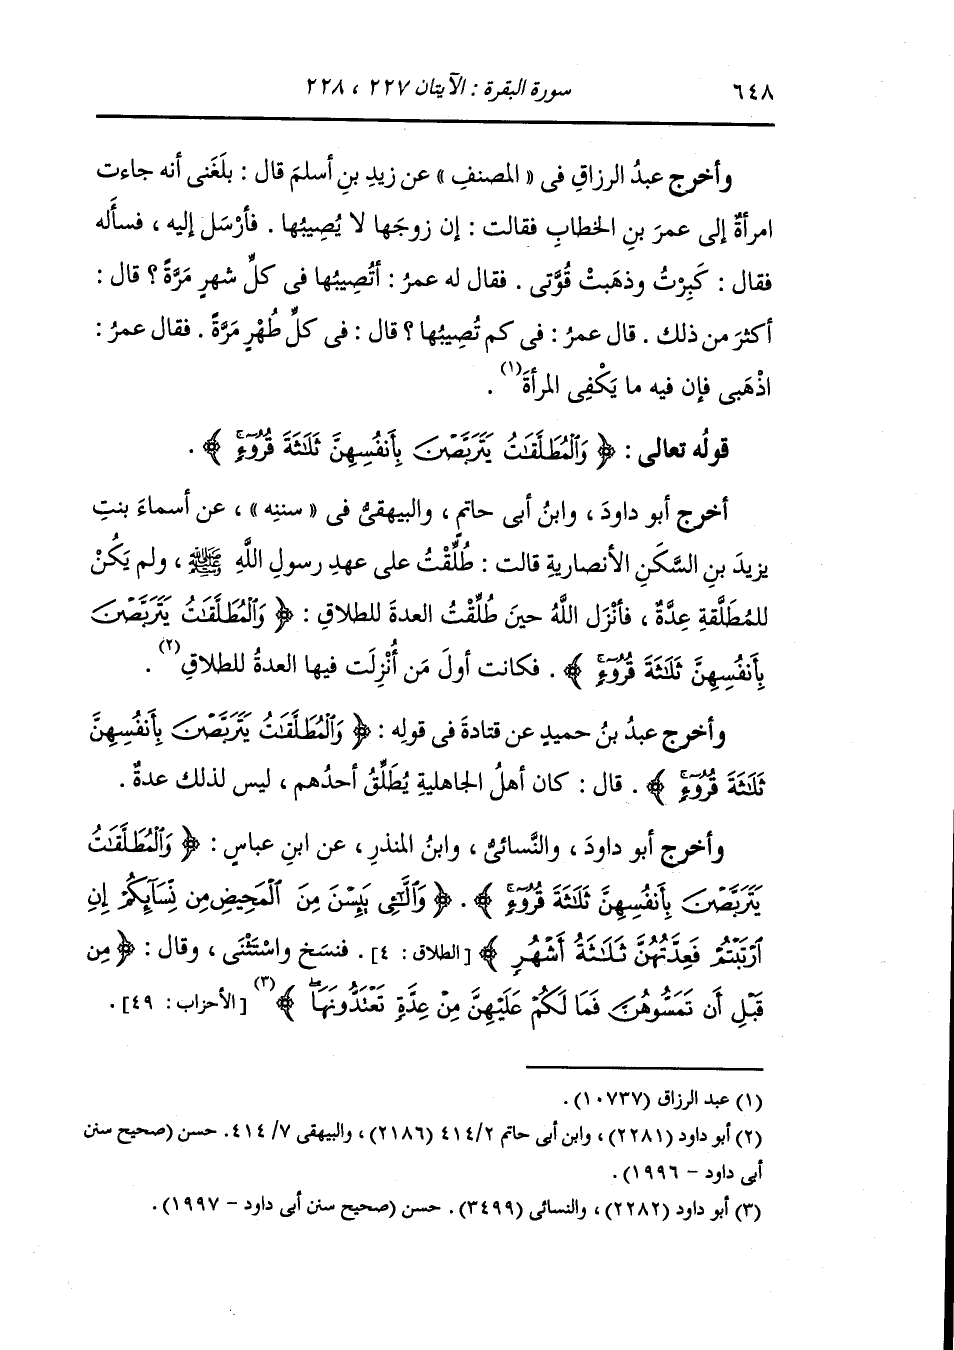 ٦٤٨ سورة البقرة : الآيتان ٢٢٧ ، ٢٢٨
وأخرج عبدُ الرزاقِ فى « المصنفِ » عن زيدِ بنِ أسلمَ قال : بلَغَنى أنه جاءت
امرأةٌ إلى عمرَ بنِ الخطابِ فقالت : إن زوجَها لا يُصِيبُها . فأرْسَل إليه ، فسأله
فقال : كَبِرْتُ وذهَبتْ قُوَّتى . فقال له عمرُ : أتُصِيبُها فى كلِّ شهرٍ مَرَّةً ؟ قال :
أكثرَ من ذلك . قال عمرُ : فى كم تُصِيبُها ؟ قال : فى كلِّ طُهْرٍ مَرَّةً . فقال عمرُ :
اذْهَبى فإن فيه ما يَكْفِى المرأةَ(١) .
قولُه تعالى : ﴿ وَٱلْمُطَلَّقَٰتُ يَتَرَبَّصْنَ بِأَنفُسِهِنَّ ثَلَٰثَةَ قُرُوٓءٍ ﴾ .
أخرج أبو داودَ ، وابنُ أبى حاتمٍ ، والبيهقىُّ فى « سننِه » ، عن أسماءَ بنتِ
يزيدَ بنِ السَّكَنِ الأنصاريةِ قالت : طُلِّقْتُ على عهدِ رسولِ اللَّهِ ﷺ ، ولم يَكُنْ
للمُطَلَّقةِ عِدَّةٌ ، فأنْزَل اللَّهُ حينَ طُلِّقْتُ العدةَ للطلاقِ : ﴿ وَٱلْمُطَلَّقَٰتُ يَتَرَبَّصْنَ
بِأَنفُسِهِنَّ ثَلَٰثَةَ قُرُوٓءٍ ﴾ . فكانت أولَ مَن أُنْزِلَت فيها العدةُ للطلاقِ(٢) .
وأخرج عبدُ بنُ حميدٍ عن قتادةَ فى قولِه : ﴿ وَٱلْمُطَلَّقَٰتُ يَتَرَبَّصْنَ بِأَنفُسِهِنَّ
ثَلَٰثَةَ قُرُوٓءٍ ﴾ . قال : كان أهلُ الجاهليةِ يُطَلِّقُ أحدُهم ، ليس لذلك عدةٌ .
وأخرج أبو داودَ ، والنَّسائىُّ ، وابنُ المنذرِ ، عن ابنِ عباسٍ : ﴿ وَٱلْمُطَلَّقَٰتُ
يَتَرَبَّصْنَ بِأَنفُسِهِنَّ ثَلَٰثَةَ قُرُوٓءٍ ﴾ . ﴿ وَٱلَّٰٓـِٔى يَئِسْنَ مِنَ ٱلْمَحِيضِ مِن نِّسَآئِكُمْ إِنِ
ٱرْتَبْتُمْ فَعِدَّتُهُنَّ ثَلَٰثَةُ أَشْهُرٍ ﴾ [الطلاق : ٤] . فنسَخ واسْتَثْنَى ، وقال : ﴿ مِن
قَبْلِ أَن تَمَسُّوهُنَّ فَمَا لَكُمْ عَلَيْهِنَّ مِنْ عِدَّةٍ تَعْتَدُّونَهَا ﴾(٣) [الأحزاب : ٤٩] .
(١) عبد الرزاق (١٠٧٣٧) .
(٢) أبو داود (٢٢٨١) ، وابن أبى حاتم ٤١٤/٢ (٢١٨٦) ، والبيهقى ٧/ ٤١٤. حسن (صحيح سنن
أبى داود – ١٩٩٦) .
(٣) أبو داود (٢٢٨٢) ، والنسائى (٣٤٩٩) . حسن (صحيح سنن أبى داود – ١٩٩٧) .